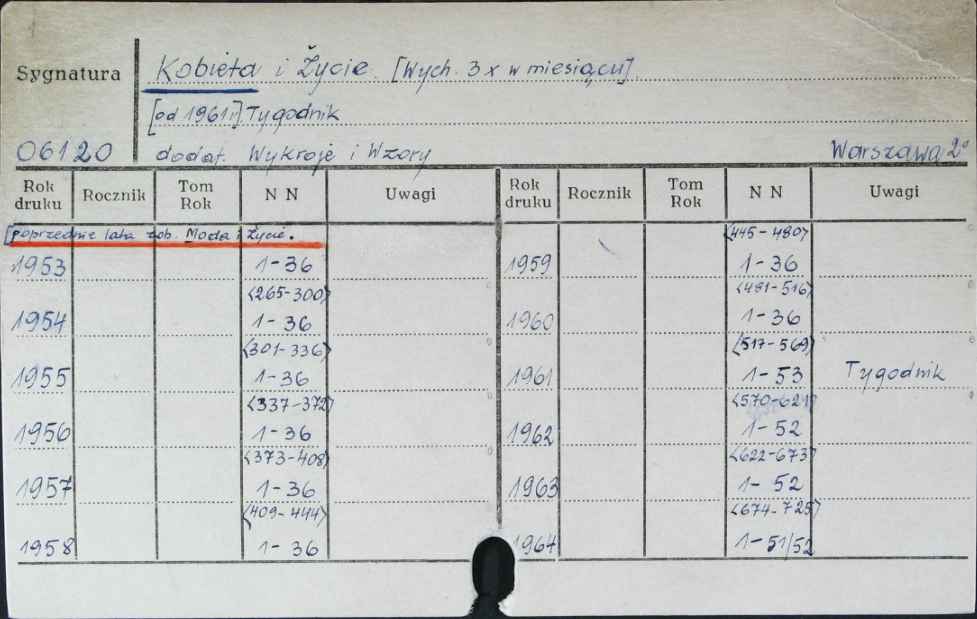 Sygnatura Kobieta i Życie [Wych. 3 x w miesiącu]
[od 1961 r.] Tygodnik
06120 dodat. Wykroje i Wzory Warszawa 2°
Rok druku Rocznik Tom Rok N N Uwagi Rok druku Rocznik Tom Rok N N Uwagi
[poprzednie lata zob. Moda i Życie.
1953 1-36
<265-300>
1954 1-36
<301-336>
1955 1-36
<337-372>
1956 1-36
<373-408>
1957 1-36
<409-444>
1958 1-36
<445-480>
1959 1-36
<481-516>
1960 1-36
<517-569>
1961 1-53 Tygodnik
<570-621>
1962 1-52
<622-673>
1963 1-52
<674-725>
1964 1-51/52